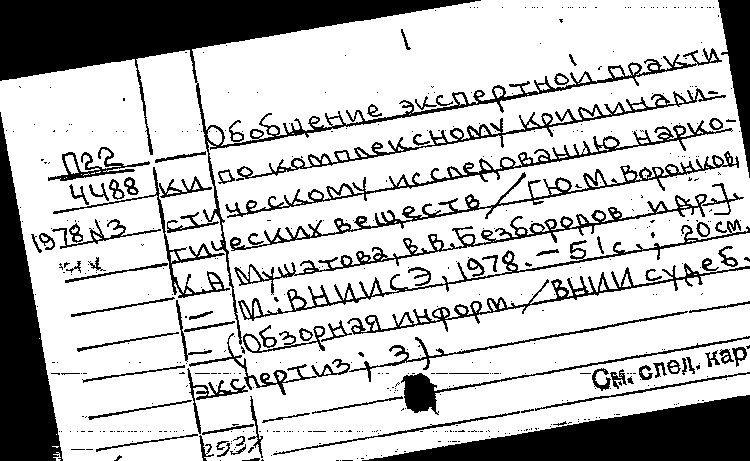 1
Обобщение экспертной практи-
П22
4488
1978 N3
ки по комплексному криминали-
стическому исследованию нарко-
тических веществ / [Ю.М. Воронков,
К.А. Мушатова, В.В. Безбородов и др.].
— М.: ВНИИСЭ, 1978. — 51 с.; 20 см.
— (Обзорная информ. / ВНИИ судеб.
экспертиз; 3).
См. след. карт
2537